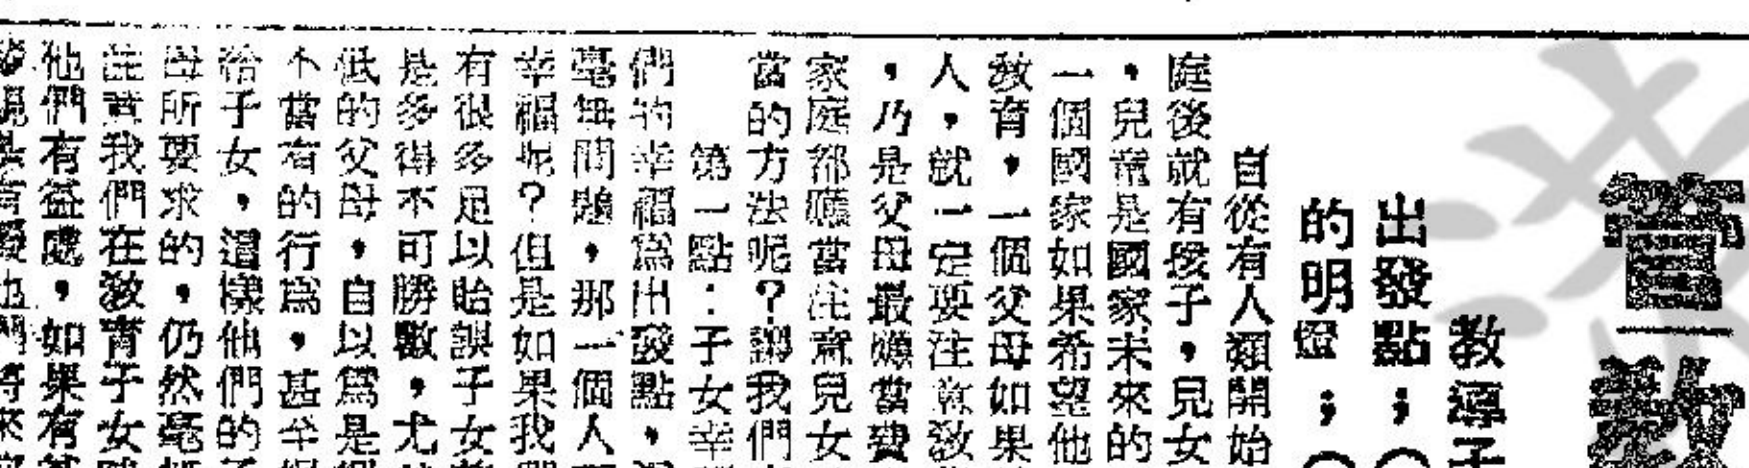 管教
教導子
出發點；（
的明燈；（
自從有人類開始
庭後就有孩子，兒女
，兒童是國家未來的
一個國家如果希望他
教育，一個父母如果
人，就一定要注意教
，乃是父母最應當費
家庭都應當注意兒女
當的方法呢？讓我們
第一點：子女幸
們的幸福為出發點，
毫無問題，那一個人
幸福呢？但是如果我
有很多足以貽誤子女
是多得不可勝數，尤
低的父母，自以為是
不當有的行為，甚至
給子女，這樣他們的
母所要求的，仍然毫
注意我們在教育子女
他們有益處，如果有